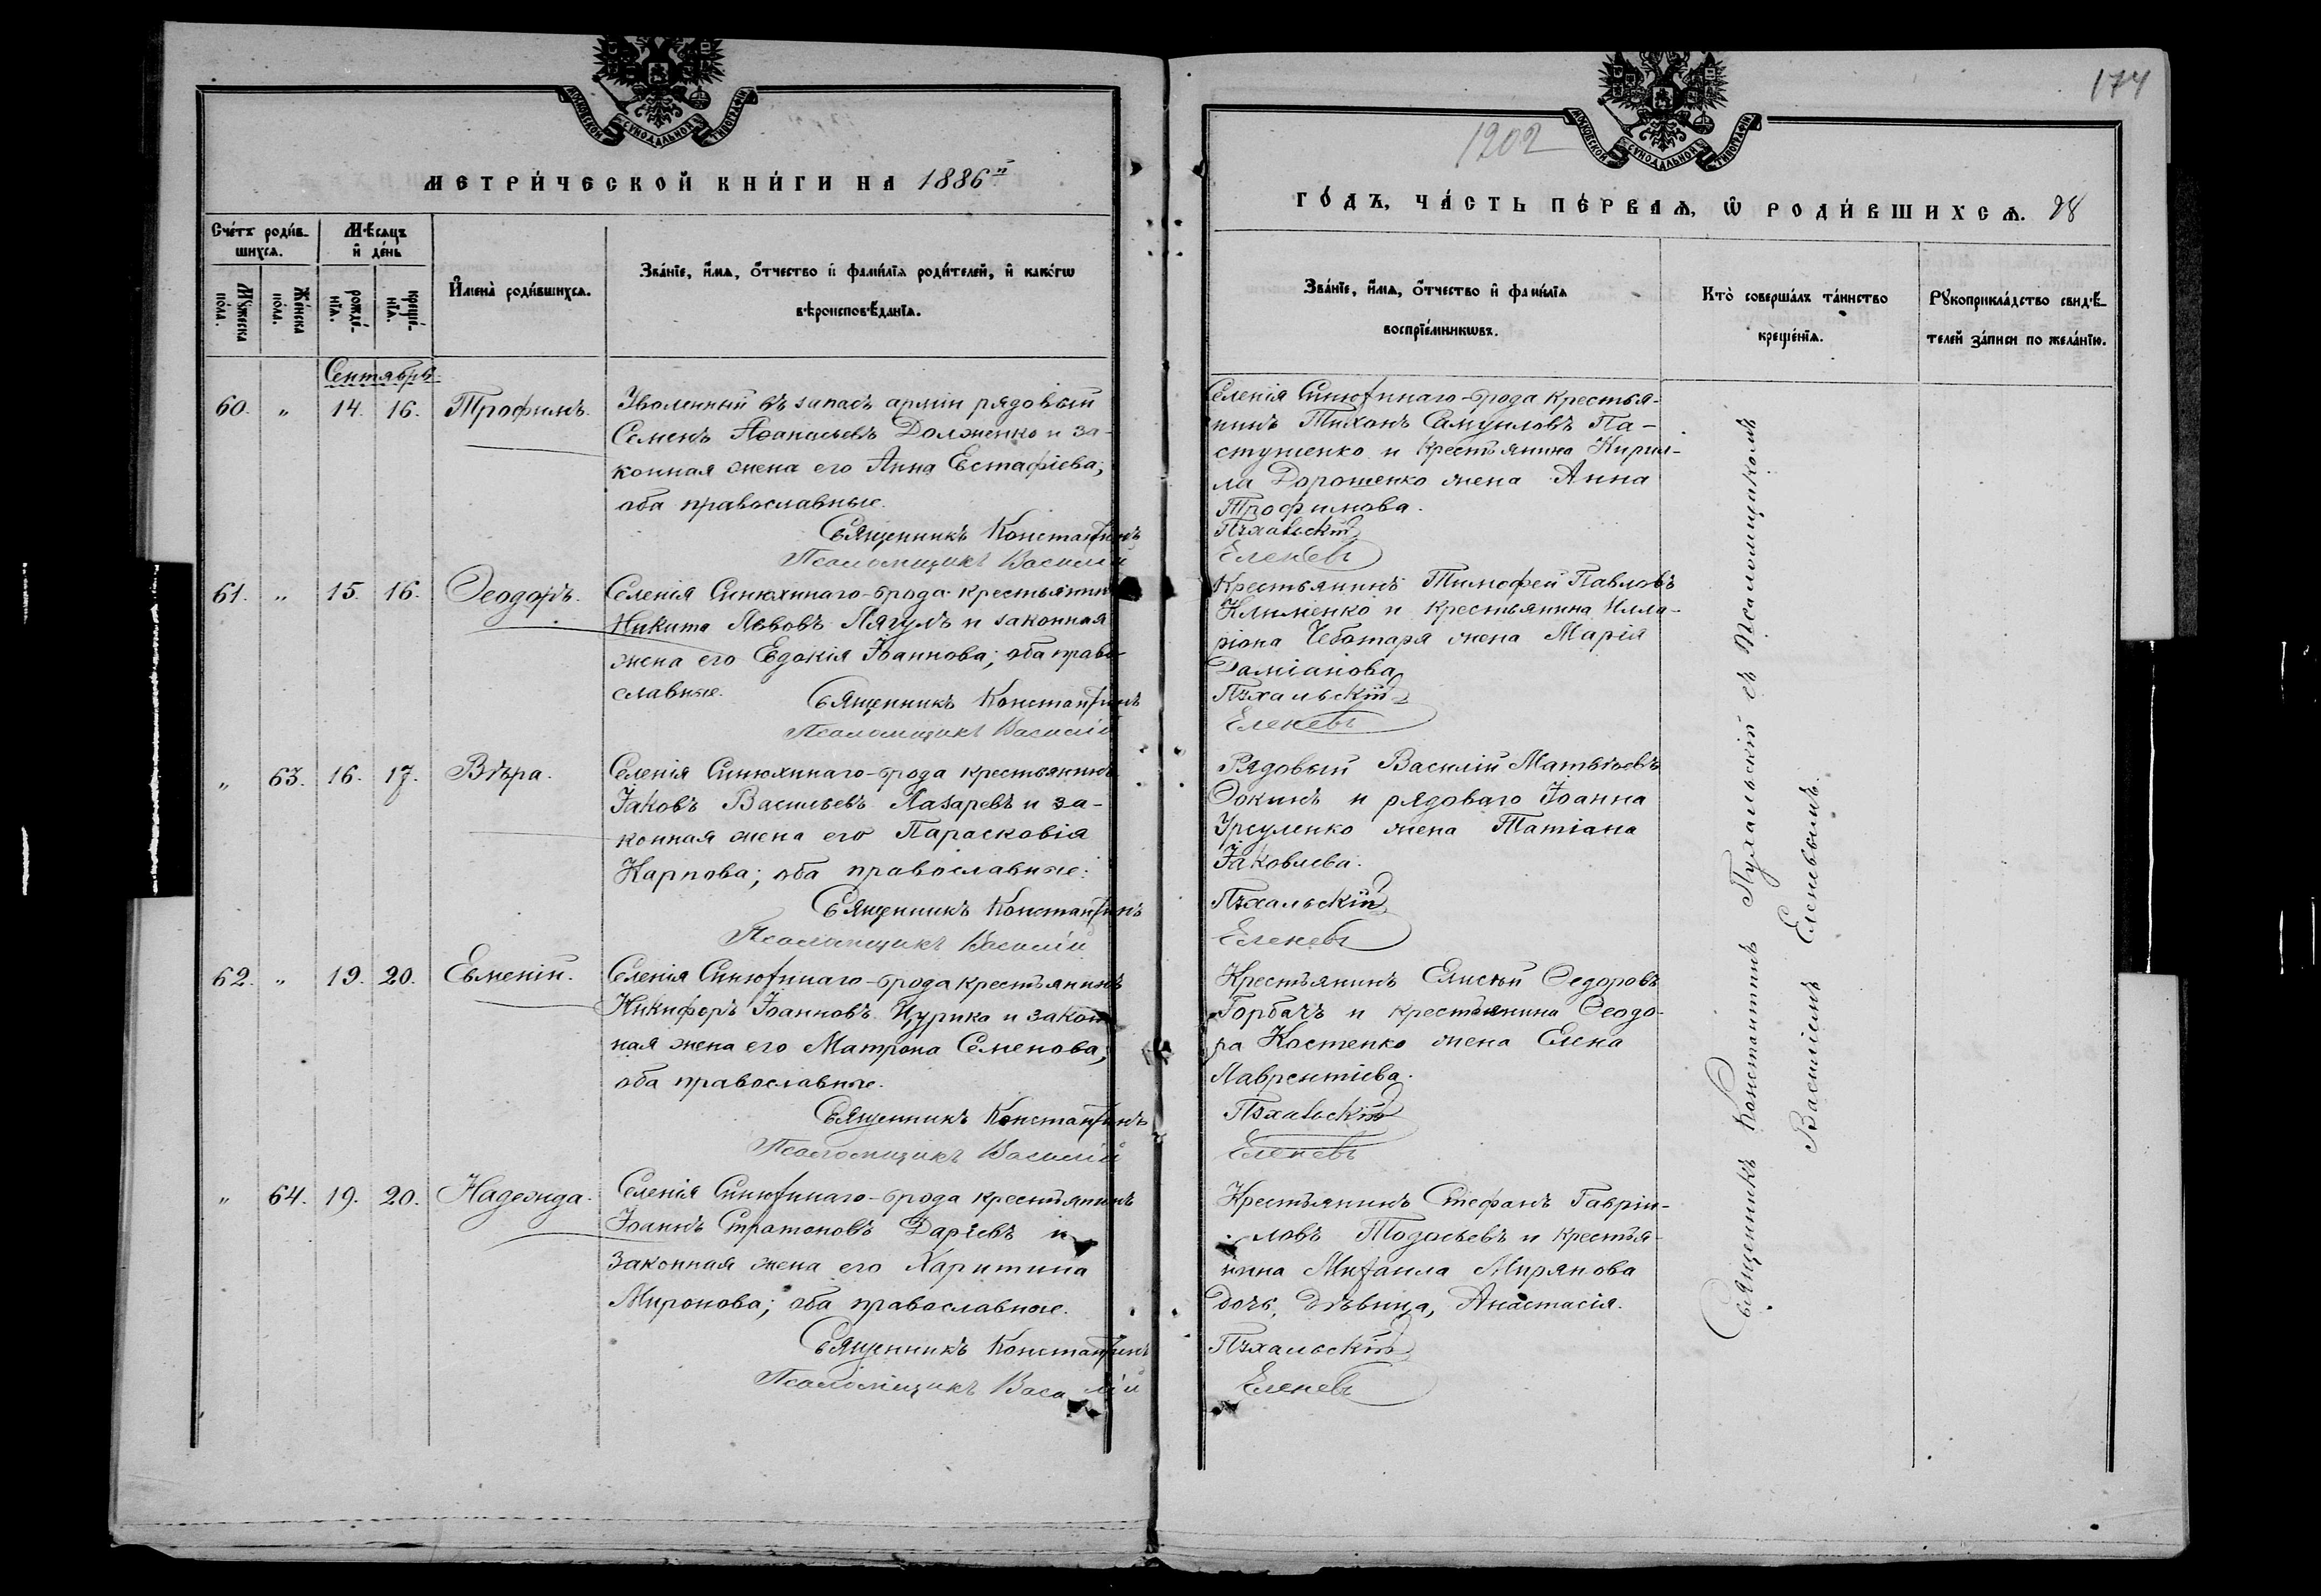 МОСКОВСКОЙ СѴНОДАЛЬНОЙ ТИПОГРАФІИ
МЕТРИ́ЧЕСКОЙ КНИ́ГИ НА 1886й
Сче́тъ роди́в-
шихсѧ.
Мꙋ́жеска
по́ла.
Же́нска
по́ла.
Мѣ́сѧцъ
и҆ де́нь
рожде́-
нїѧ.
креще́-
нїѧ.
И҆мена̀ роди́вшихсѧ.
Зва́нїе, и҆́мѧ, ѻ҆́тчество и҆ фами́лїѧ роди́телей, и҆ како́гѡ
вѣроисповѣ́данїѧ.
Сентябрь.
60. „ 14. 16. Трофимъ.
Уволенный въ запасъ арміи рядовый
Семенъ Аѳанасьевъ Долженко и за-
конная жена его Анна Евстафіева;
оба православные.
Священникъ Константинъ
Псаломщикъ Василій
61. „ 15. 16. Ѳеодоръ.
Селенія Синюхинаго-брода крестьянинъ
Никита Львовъ Лягулъ и законная
жена его Евдокія Іоаннова; оба право-
славные.
Священникъ Константинъ
Псаломщикъ Василій
„ 63. 16. 17. Вѣра.
Селенія Синюхинаго-брода крестьянинъ
Іаковъ Васильевъ Лазаревъ и за-
конная жена его Парасковія
Карпова; оба православные.
Священникъ Константинъ
Псаломщикъ Василій
62. „ 19. 20. Евменій.
Селенія Синюхинаго-брода крестьянинъ
Никифоръ Іоанновъ Цурика и закон-
ная жена его Матрона Семенова;
оба православные.
Священникъ Константинъ
Псаломщикъ Василій
„ 64. 19. 20. Надежда.
Селенія Синюхинаго-брода крестьянинъ
Іоаннъ Стратоновъ Даріевъ и
законная жена его Харитина
Миронова; оба православные.
Священникъ Константинъ
Псаломщикъ Василій
174
1202
МОСКОВСКОЙ СѴНОДАЛЬНОЙ ТИПОГРАФІИ
ГО́ДЪ, ЧА́СТЬ ПЕ́РВАѦ, Ѡ҆ РОДИ́ВШИХСѦ. 28
Зва́нїе, и҆́мѧ, ѻ҆́тчество и҆ фами́лїѧ
воспрїе́мникѡвъ.
Кто̀ соверша́лъ та́инство
креще́нїѧ.
Рꙋкоприкла́дство свидѣ́-
телей за́писи по жела́нїю.
Селенія Синюхинаго-брода крестья-
нинъ Тихонъ Самуиловъ Па-
стушенко и крестьянина Кирил-
ла Дорошенко жена Анна
Трофимова.
Пухальскій
Еленевъ
Крестьянинъ Тимофей Павловъ
Клименко и крестьянина Илла-
ріона Чеботаря жена Марія
Даміанова
Пухальскій
Еленевъ
Рядовый Василій Матвѣевъ
Ѳокинъ и рядоваго Іоанна
Урсуленко жена Татіана
Іаковлева.
Пухальскій
Еленевъ
Крестьянинъ Елисѣй Ѳедоровъ
Горбачъ и крестьянина Ѳеодо-
ра Костенко жена Елена
Лаврентіева.
Пухальскій
Еленевъ
Крестьянинъ Стефанъ Гавріи-
ловъ Тодосьевъ и крестья-
нина Михаила Мирянова
дочь, дѣвица, Анастасія.
Пухальскій
Еленевъ
Священникъ Константинъ Пухальскій съ Псаломщикомъ
Василіемъ Еленевымъ.